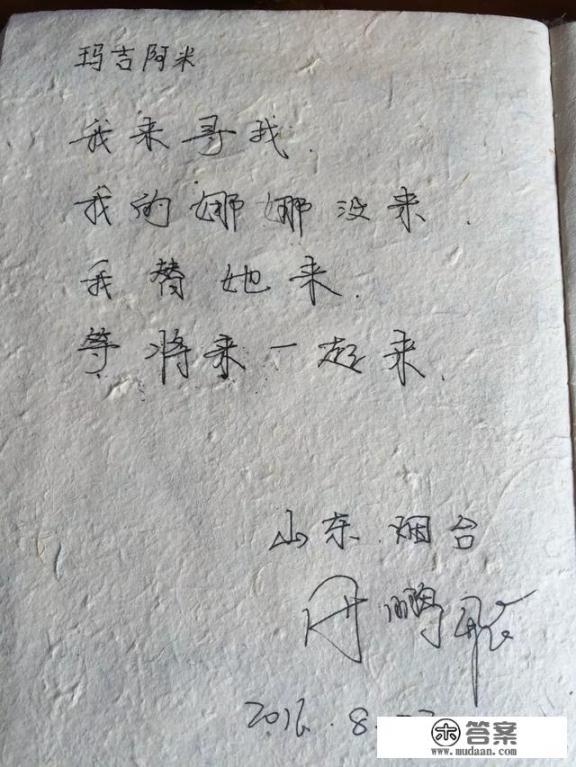 玛吉阿米
我来寻找.
我的娜娜没来.
我替她来.
等将来一起来.
山东烟台
鹏
2016.8.
答案
www.mudaan.com